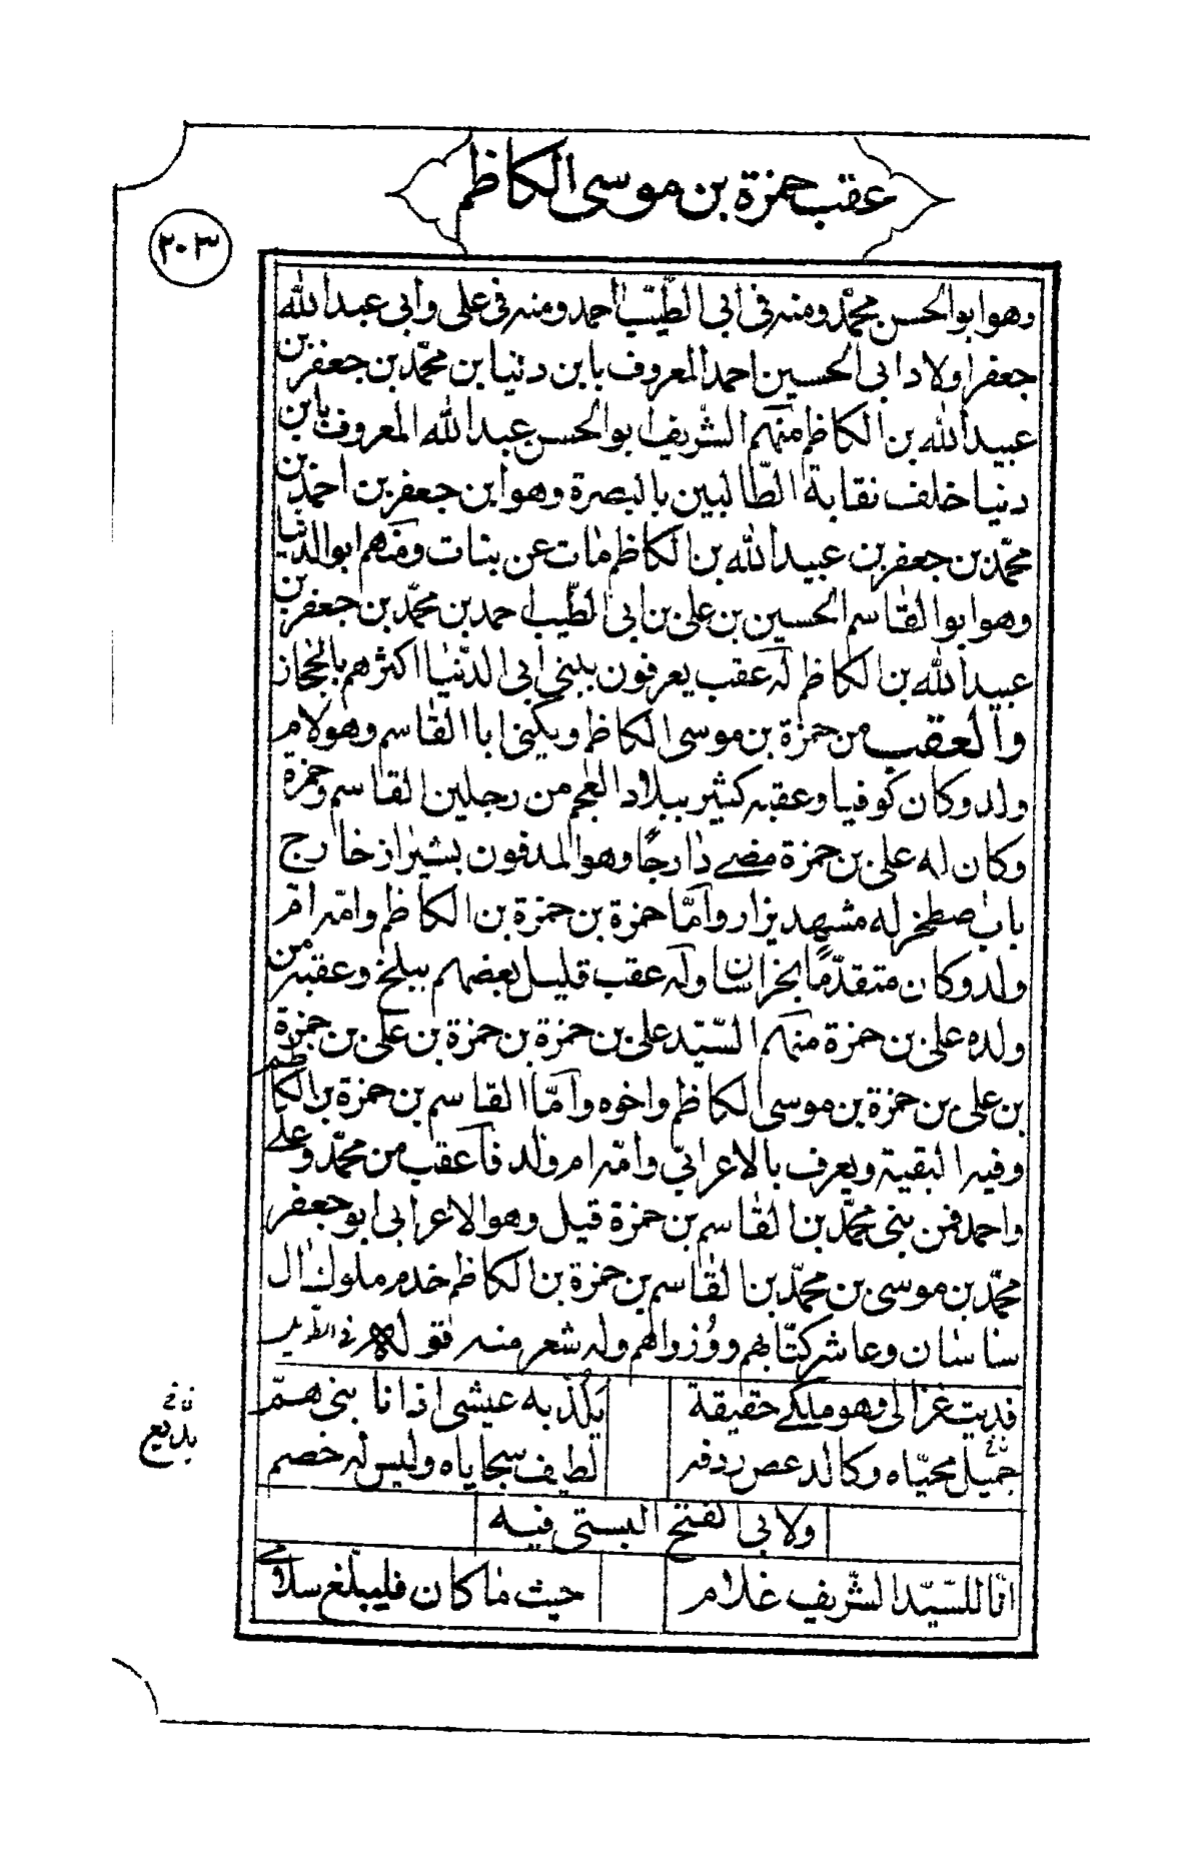 عقب حمزة بن موسى الكاظم
٢٠٣
وهو ابو الحسن محمّد ومنه فى ابى الطيّب احمد ومنه فى على وابى عبد الله
جعفر اولاد ابى الحسين احمد المعروف بابن دنيا بن محمّد بن جعفر بن
عبيد الله بن الكاظم منهم الشريف ابو الحسن عبد الله المعروف بابن
دنيا خلف نقابة الطّالبيين بالبصرة وهو ابن جعفر بن احمد بن
محمّد بن جعفر بن عبيد الله بن الكاظم مات عن بنات ومنهم ابو الدنيا
وهو ابو القاسم الحسين بن على بن ابى الطيّب احمد بن محمّد بن جعفر بن
عبيد الله بن الكاظم له عقب يعرفون ببنى ابى الدّنيا اكثرهم بالحجاز
والعقب من حمزة بن موسى الكاظم ويكنى ابا القاسم وهو لام
ولد وكان كوفيا وعقبه كثير ببلاد العجم من رجلين القاسم وحمزة
وكان له على بن حمزة مضى دارجًا وهو المدفون بشيراز خارج
باب صطخر له مشهد يزار وامّا حمزة بن حمزة بن الكاظم وامّه ام
ولد وكان متقدّمًا بخراسان وله عقب قليل بعضهم ببلخ وعقبه من
ولده على بن حمزة منهم السّيد على بن حمزة بن حمزة بن على بن حمزة
بن على بن حمزة بن موسى الكاظم واخوه وامّا القاسم بن حمزة بن الكاظم
وفيه البقية ويعرف بالاعرابىّ وامّه ام ولد فاعقب من محمّد وعلى
واحمد فمن بنى محمّد بن القاسم بن حمزة قيل وهو الاعرابى ابو جعفر
محمّد بن موسى بن محمّد بن القاسم بن حمزة بن الكاظم خدم ملوك ال
ساسان وعاشر كتّابهم ووزراءهم وله شعر منه قوله فى
فديت غزالى وهو ملكى حقيقة
يلذ به عيشى اذا نا بنى هــمّ
جميل محيّاه وكالدعص ردفه
لطيف سجاياه وليس له خصم
بديع
ولابى الفتح البستى فيه
انّا للسّيد الشّريف غلام
حيث ما كان فليبلّغ سلامى